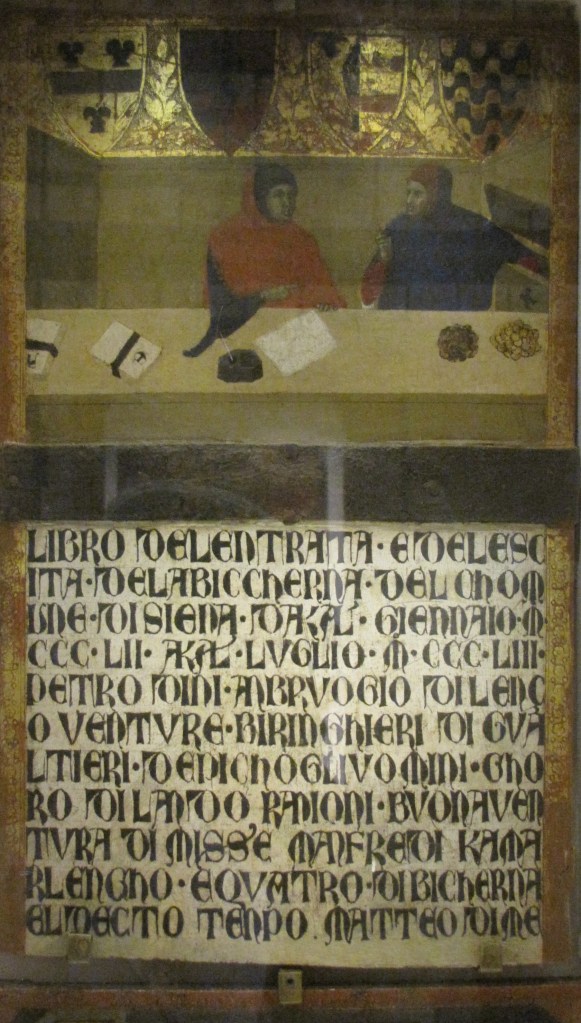 LIBRO DELENTRATA · E DELESC
ITA · DELABICCHERNA · DEL CHOM
UNE · DI SIENA · DAKAL · GIENNAIO · M ·
CCC · LII · AKAL · LUGLIO · M · CCC · LIII ·
PETRO DINI · ANBRUOGIO DI LENC
O VENTURE · BIRINGHIERI DI GUA
LTIERI · DEPICHOGLIVOMINI · GHO
RO DI LANDO RANIONI · BUONAVEN
TVRA DI MISSE MANFREDI KAMA
RLENGHO · EQUATRO · DIBICHERNA
ELDECTO TENPO . MATTEO DIME